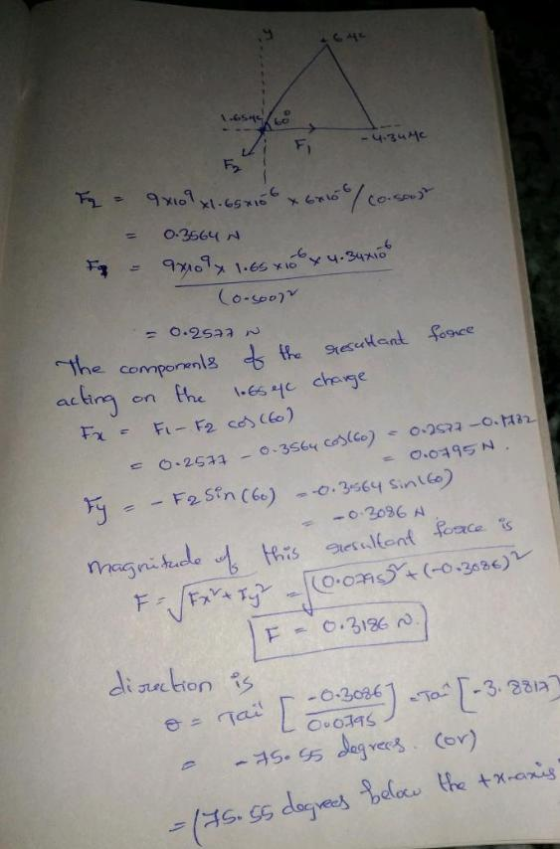 y
6 μc
1.65μc
60°
F1
-4.34μc
F2
F2 = 9x10^9 x1.65x10^-6 x 6x10^-6/(0.500)^2
= 0.3564 N
= 9x10^9 x 1.65 x10^-6 x 4.34x10^-6
(0.500)^2
= 0.2577 N
The components of the resultant force
acting on the 1.65 μc charge
Fx = F1 - F2 cos(60)
= 0.2577 - 0.3564 cos(60) = 0.2577 - 0.1782
= 0.0795 N.
Fy = - F2 Sin(60) = -0.3564 sin(60)
= -0.3086 N
Magnitude of this resultant force is
F = √Fx²+Fy² = √(0.0795)²+(-0.3086)²
F = 0.3186 N.
direction is
θ = Tan⁻¹ [-0.3086/0.0795] = Tan⁻¹ [-3.8817]
= -75.55 degrees. (or)
= (75.55 degrees below the +x-axis